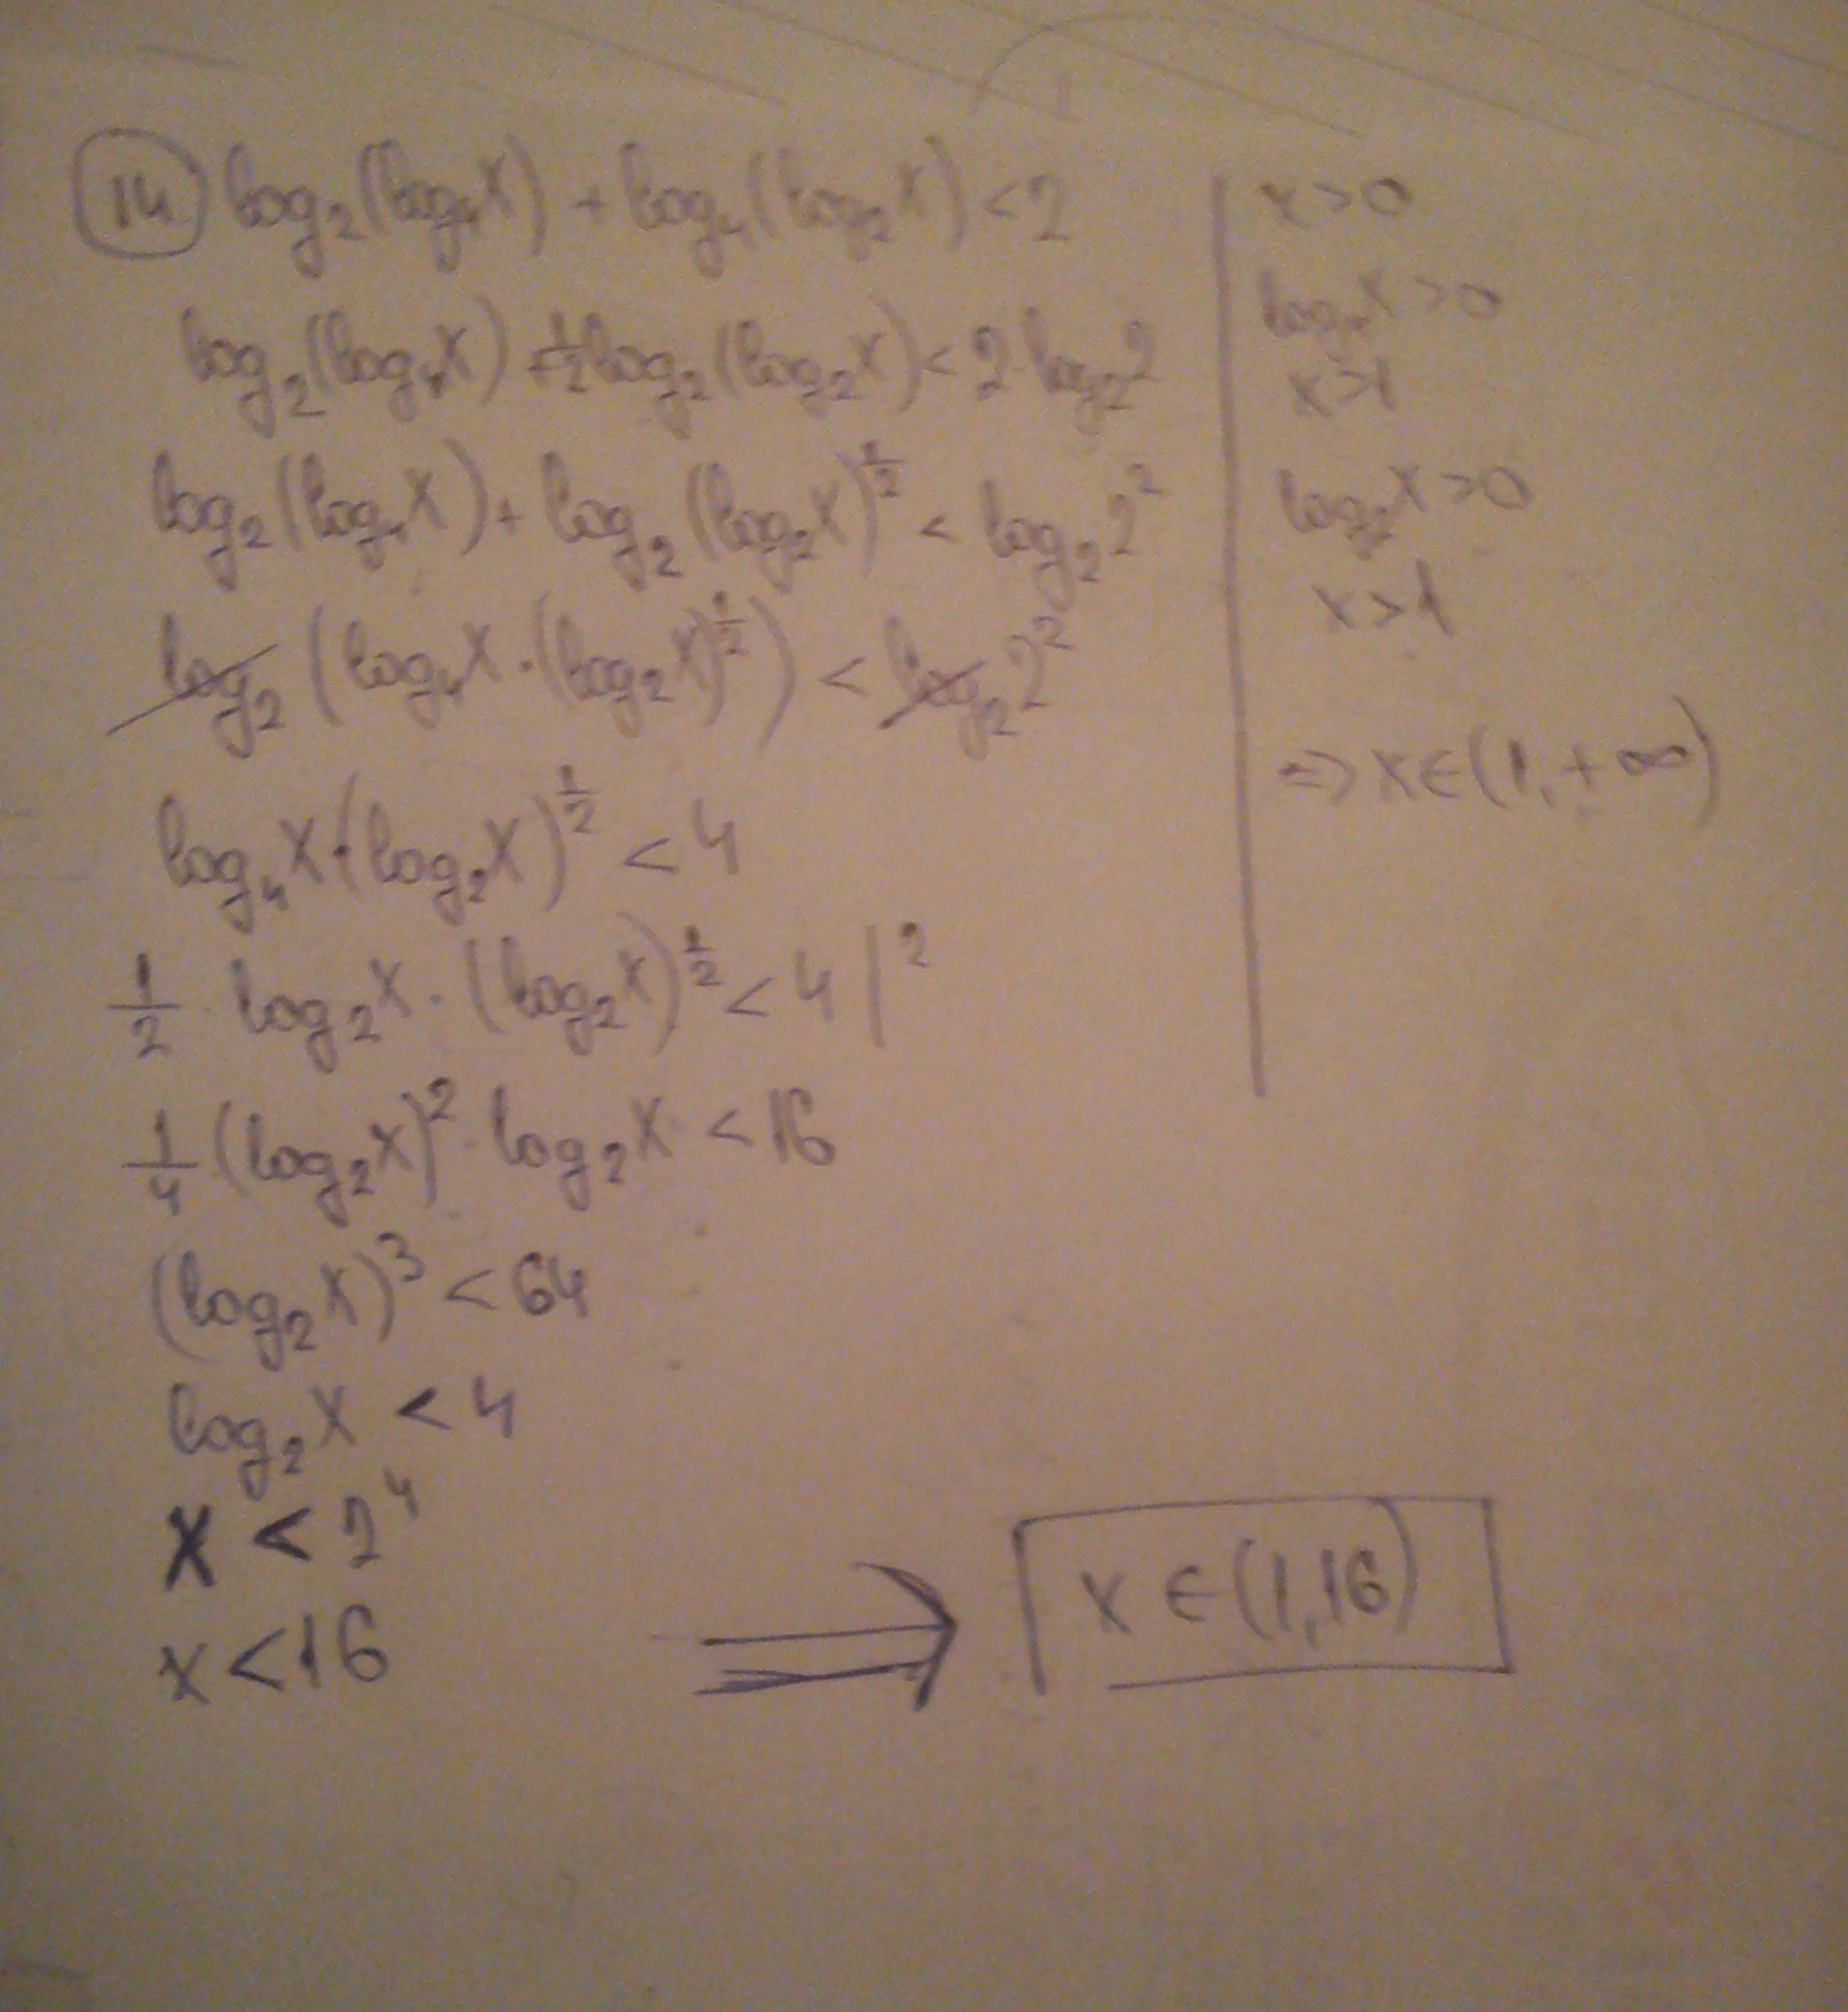 14 log₂(log₄x) + log₄(log₂x) < 2
log₂(log₄x) + ½log₂(log₂x) < 2·log₂2
log₂(log₄x) + log₂(log₂x)^½ < log₂2²
log₂(log₄x·(log₂x)^½) < log₂2²
log₄x·(log₂x)^½ < 4
½·log₂x·(log₂x)^½ < 4 |²
¼(log₂x)²·log₂x < 16
(log₂x)³ < 64
log₂x < 4
x < 2⁴
x < 16
⇒ x ∈ (1,16)
x > 0
log₄x > 0
x > 1
log₂x > 0
x > 1
⇒ x ∈ (1,+∞)